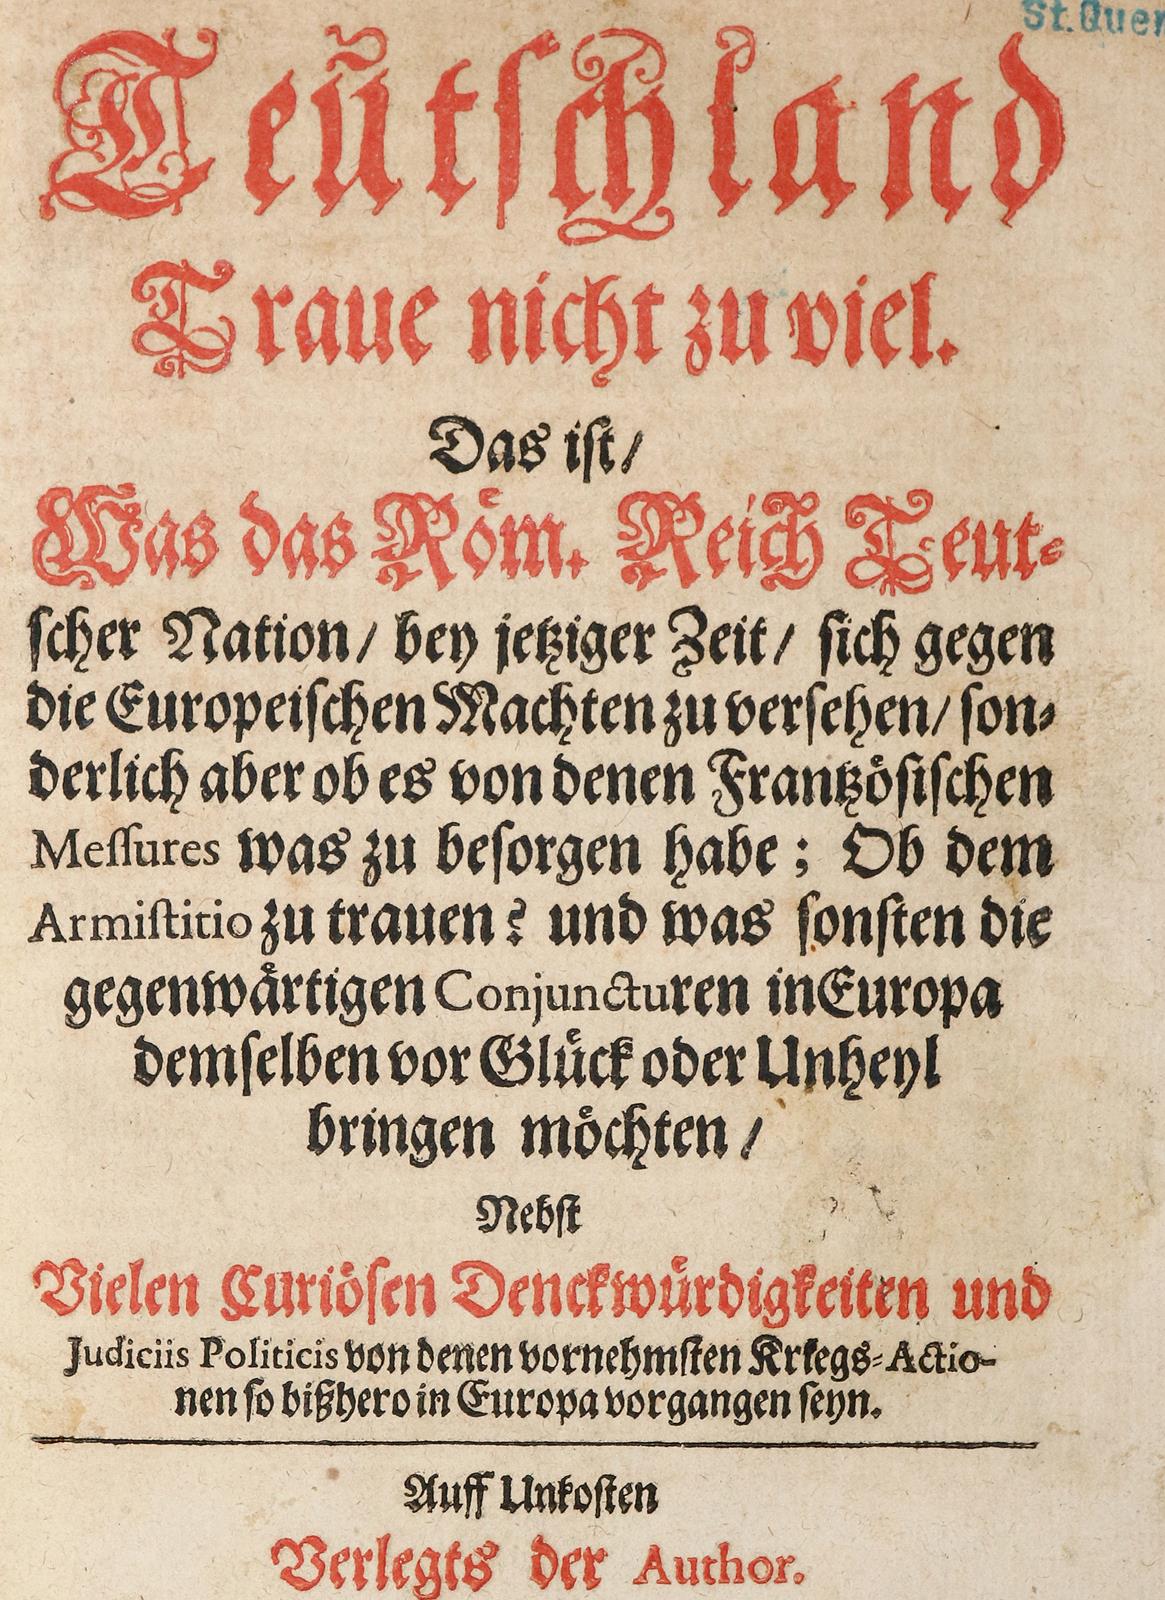 St. Quer
Teũtschland
Traue nicht zu viel.
Das ist/
Was das Röm. Reich Teut-
scher Nation/ bey jetziger Zeit/ sich gegen
die Europeischen Machten zu versehen/ son-
derlich aber ob es von denen Frantzösischen
Messures was zu besorgen habe; Ob dem
Armistitio zu trauen? und was sonsten die
gegenwärtigen Conjuncturen in Europa
demselben vor Glück oder Unheyl
bringen möchten/
Nebst
Vielen Curiösen Denckwürdigkeiten und
Judiciis Politicis von denen vornehmsten Kriegs-Actio-
nen so bißhero in Europa vorgangen seyn.
Auff Unkosten
Verlegts der Author.